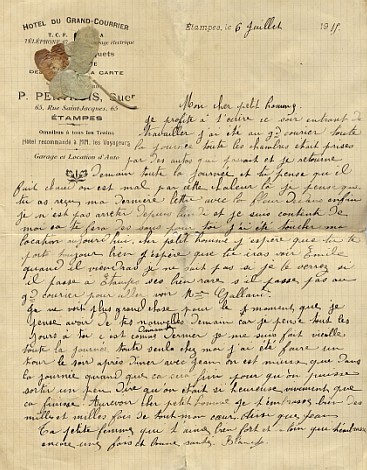 HOTEL DU GRAND-COURRIER
T. C. F. A
TÉLÉPHONE électrique
quets
DE LA CARTE
P. PE IS, Sucr
65, Rue Saint-Jacques, 65
ÉTAMPES
Omnibus à tous les Trains
Hôtel recommandé à MM. les Voyageurs
Garage et Location d'Auto
Étampes, le 6 Juillet 191
Mon cher petit homme
Je profite à t'écrire ce soir entrant de
travailler j'ai été au gd courier toute
la journée toute les chambres était prises
par des autos qui et je retourne
demain toute la journée et tu pense qu'il
fait chaud on est mal par cette chaleur là je pense que
tu as reçu ma dernière lettre avec la fleur dedans enfin
je n est pas arrêter depuis lundi et je suis contente de
moi ca te fera des sous pour toi j'ai été toucher ma
location aujourd'hui cher petit homme j espère que tu te
porte toujours bien j'espère que tu iras voir Emile
quand il viendras je ne sait pas si je le verrez si
il passe à Etampe ses bien rare s'il passe pas au
gd courier pour aller voir Mme
Je ne voit plus grand chose pour le moment que je
pense avoir de tes nouvelles demain car je pense tout les
jours à toi c'est comme dernier je me suis fait vieille
toute la journée toute seule chez moi j'ai été faire un
tour le soir après diner avec Jean on est mieux que dans
la journée quand que ca sera fini pour qu'on puisse
sortir un peu dire qu'on était si heureuse vivement que
ca finisse Aurevoir cher petit homme je t'embrasse bien des
mille et milles fois de tout mon cœur ainsi que Jean
Ta petite femme qui t'aime bien fort et loin que t'embrasse
encore une fois et bonne santé. Blanche